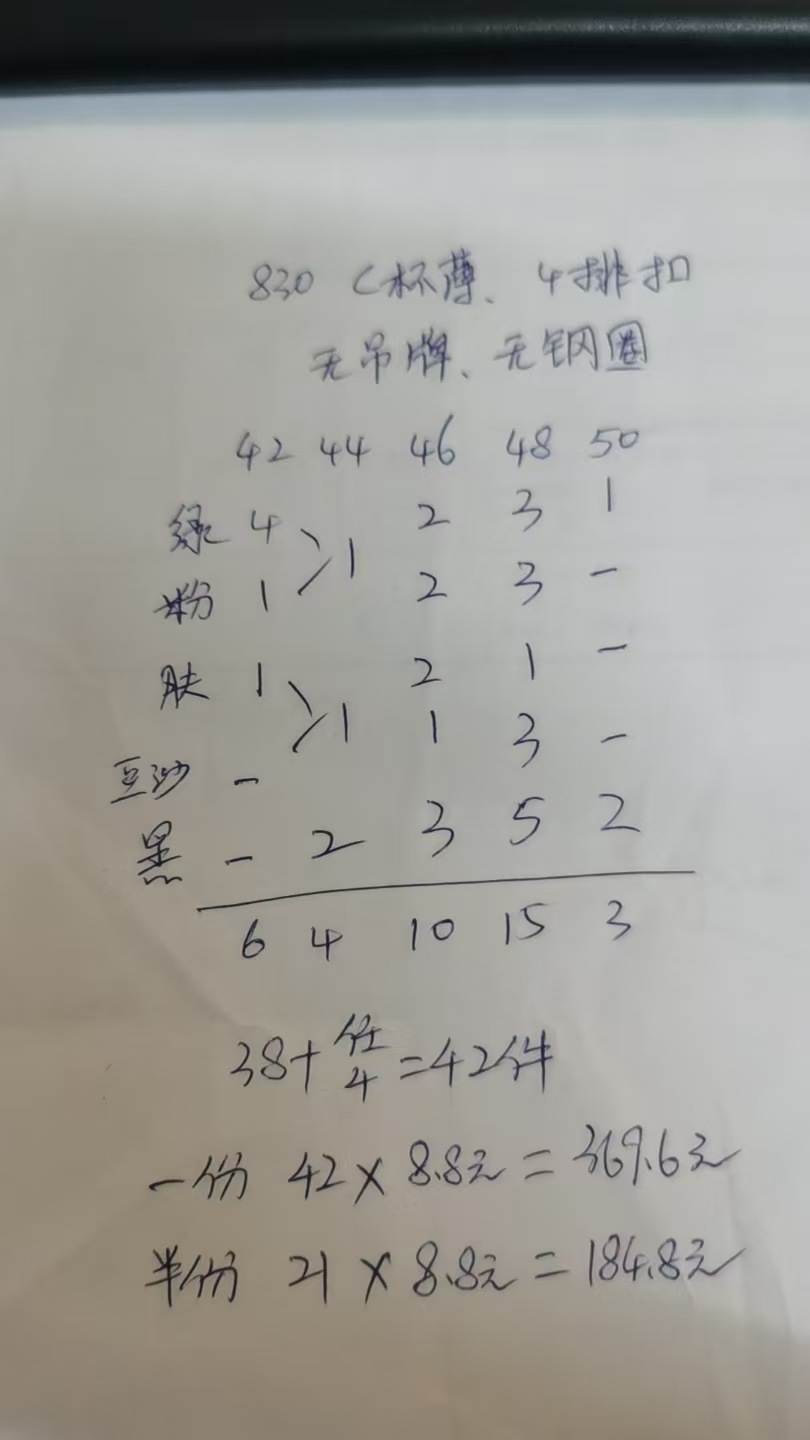 830 C杯薄、4排扣
无吊牌、无钢圈
42 44 46 48 50
绿 4 > 1 2 3 1
粉 1 2 3 -
肤 1 > 1 2 1 -
豆沙 - 1 3 -
黑 - 2 3 5 2
6 4 10 15 3
38+ 4 =42件
一份 42×8.8元=369.6元
半份 21×8.8元=184.8元